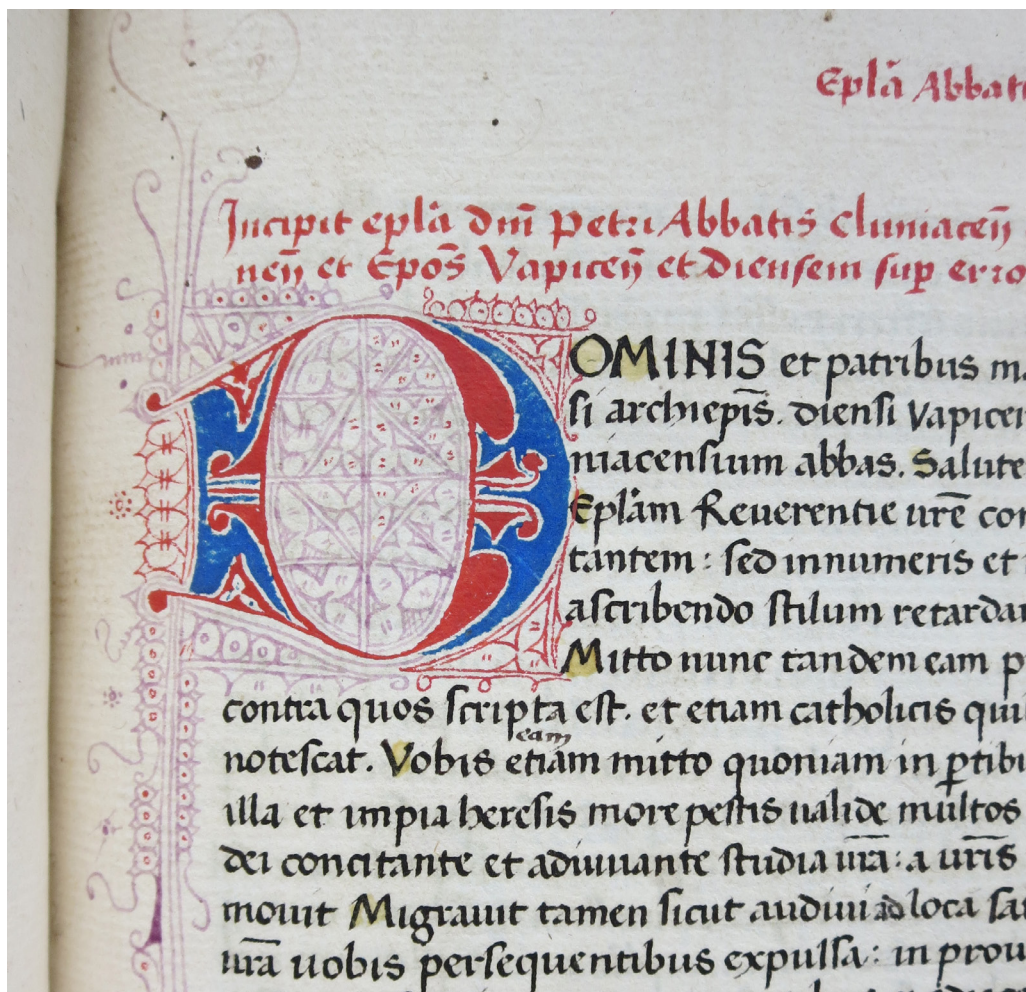 Epl̃a Abbati
Incipit epl̃a dm̃ Petri Abbatis Cluniaceñ
neñ et Ep̃os Vapiceñ et Diensem suꝑ erro
DOMINIS et patribus ma
si archiep̃is. diensi Vapicen
niacensium abbas. Salute
Epl̃am Reuerentie ur̃e con
tantem: sed innumeris et
ascribendo stilum retardar
Mitto nunc tandem eam p
contra quos scripta est. et etiam catholicis qui
eam
notescat. Vobis etiam mitto quoniam in ꝑtibu
illa et impia heresis more pestis ualide multos
dei concitante et adiuuante studia ur̃a: a ur̃is
mouit Migrauit tamen sicut audiui ad loca sa
ur̃a uobis persequentibus expulsa: in prou